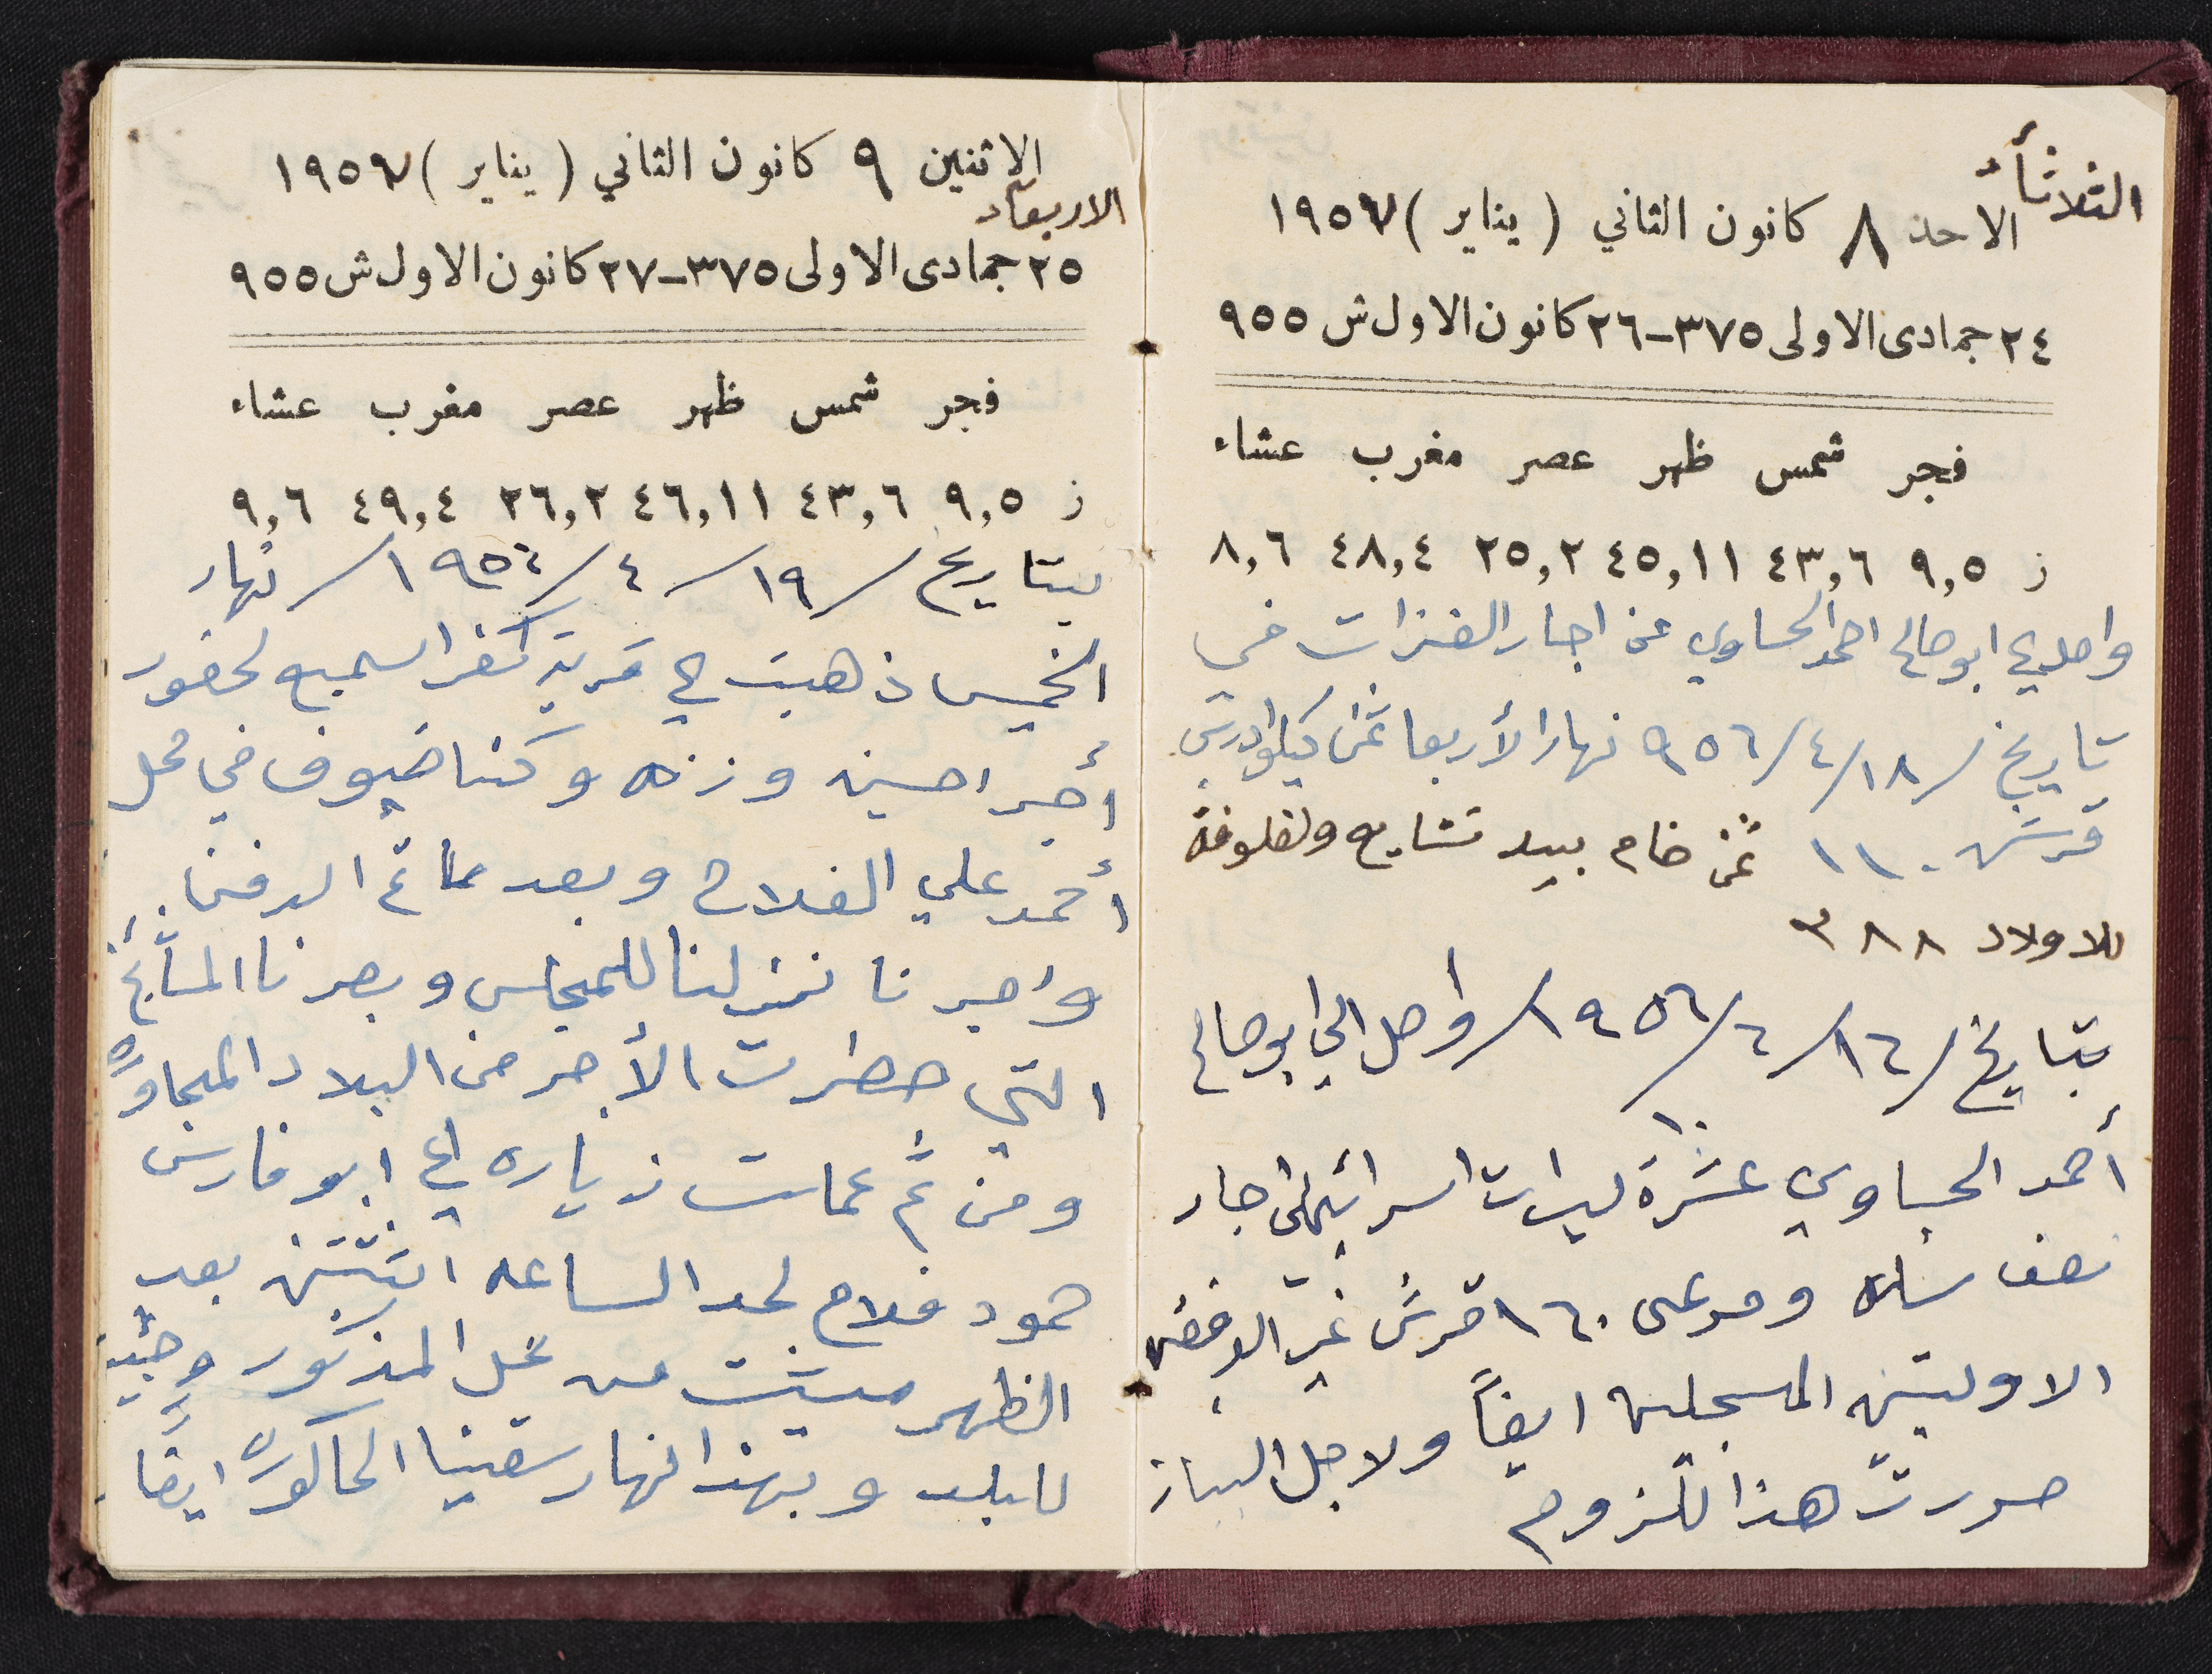 الثلاثاء
الاحد ٨ كانون الثاني (يناير) ١٩٥٧
٢٤ جمادى الاولى ٣٧٥-٢٦ كانون الاول ش ٩٥٥
فجر شمس ظهر عصر مغرب عشاء
ز ٩,٥ ٤٣,٦ ٤٥,١١ ٢٥,٢ ٤٨,٤ ٨,٦
واصل ابو صالح احمد الحساوي عن اجار العنزات في
تاريخ /١٨/٤/٩٥٦ نهار الأربعا ثمن كيلو
قرش ١١٠ ثمن خام بيد
للاولاد ٣٨٨
بتاريخ /١٤/٤/١٩٥٦/ واصل الى ابو صالح
١٠
أحمد الحساوي عشرة ليرات اسرائيلي اجار
نصف ومرعى ١٦٠ قرش غير
الاوليتين المسجليه ايضاً ولاجل البيان
حررت هذا للزوم
الاثنين ٩ كانون الثاني (يناير) ١٩٥٧
الاربعاء
٢٥ جمادى الاولى ٣٧٥-٢٧ كانون الاول ش ٩٥٥
فجر شمس ظهر عصر مغرب عشاء
ز ٩,٥ ٤٣,٦ ٤٦,١١ ٢٦,٢ ٤٩,٤ ٩,٦
بتاريخ /١٩/٤/١٩٥٦/ نهار
الخميس ذهبت الى قرية كفر اسميع لحضور
أجر احسين وزنه وكنا ضيوف في محل
أحمد علي الفلاح وبعد ما تم الدفن
واجرنا نزلنا للمجلس وبصرنا المشايخ
التي حظرت الأجر من البلاد المجاوره
ومن ثم عملت زياره الى ابو فارس
حمود فلاح لحد الساعه اثنتين بعد
الظهر مشيت من محل المذكور وجيت
للبلد وبهذا نهار سقينا الحاكوره ايضاً